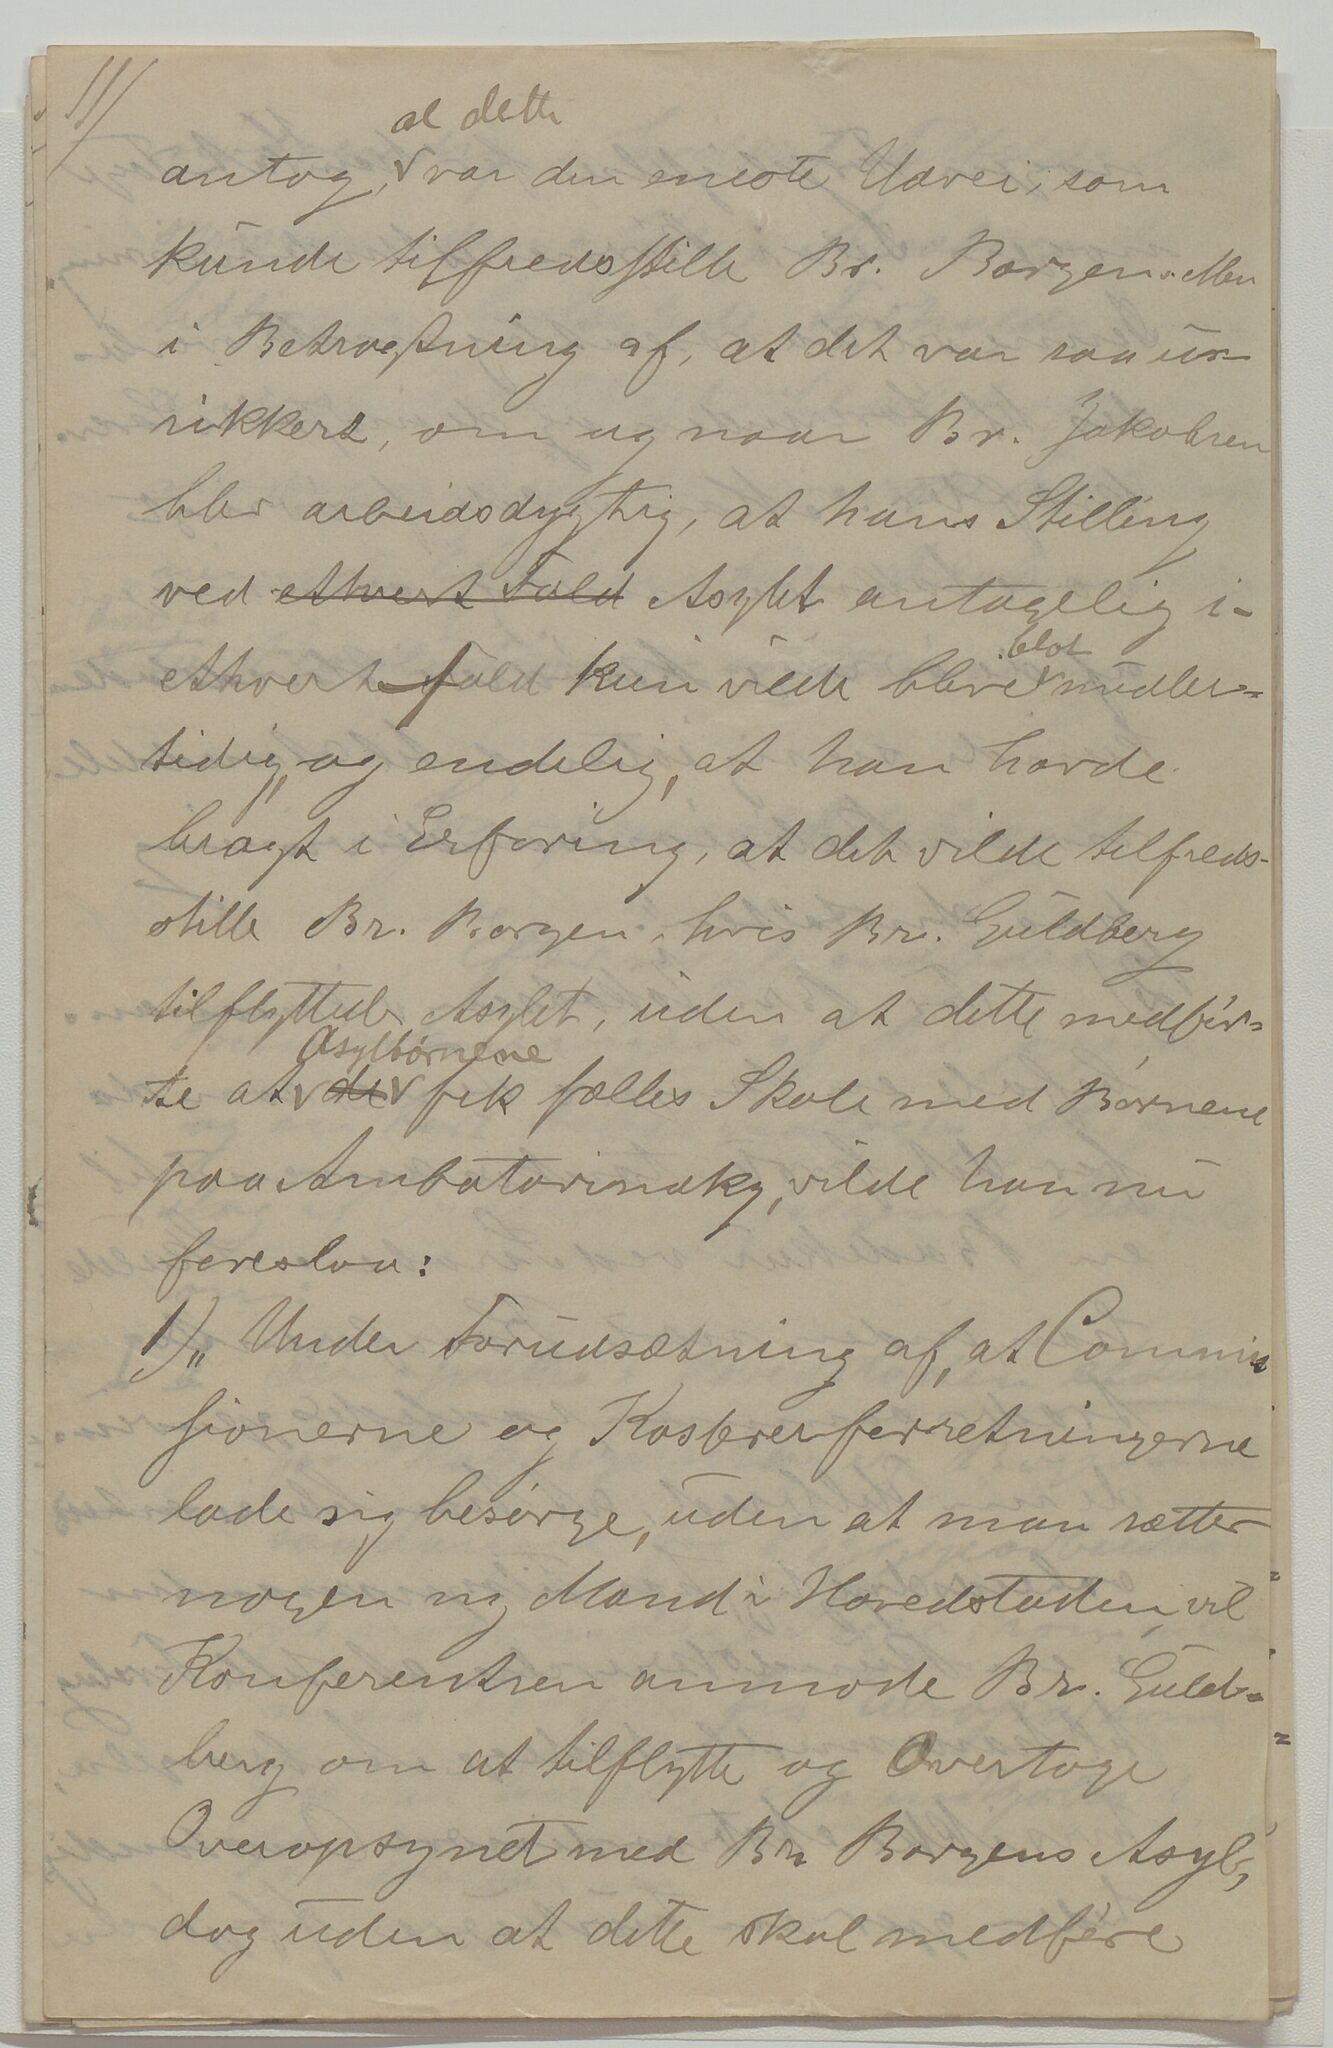 11/
at dette
antog, v var den eneste Udvei, som
kunde tilfredsstille Br. Borgen. Men
i Betragtning af, at det var saa u-
sikkert, om og naar Br. Jakobsen
blev arbeidsdygtig, at hans Stilling
ved ethvert Fald Asylet antagelig i-
ethvert Fald kun vilde blive v midler-
blot
tidig, og endelig, at han havde
bragt i Erfaring, at det vilde tilfreds-
stille Br. Borgen, hvis Br. Guldberg
tilflyttede Asylet, uden at dette medfør-
Asylbørnene
te at v de v fik fælles Skole med Børnene
paa Ambatovinaky, vilde han nu
foreslaa:
1) „ Under Forudsætning af, at Commis
sjonerne og Kasserer forretningerne
lade sig besørge, uden at man sætter
nogen ny Mand i Hovedstaden, vil
Konferentsen anmode Br. Guld-
berg om at tilflytte og Overtage
Overopsynet med Br. Borgens Asyl,
dog uden at dette skal medføre